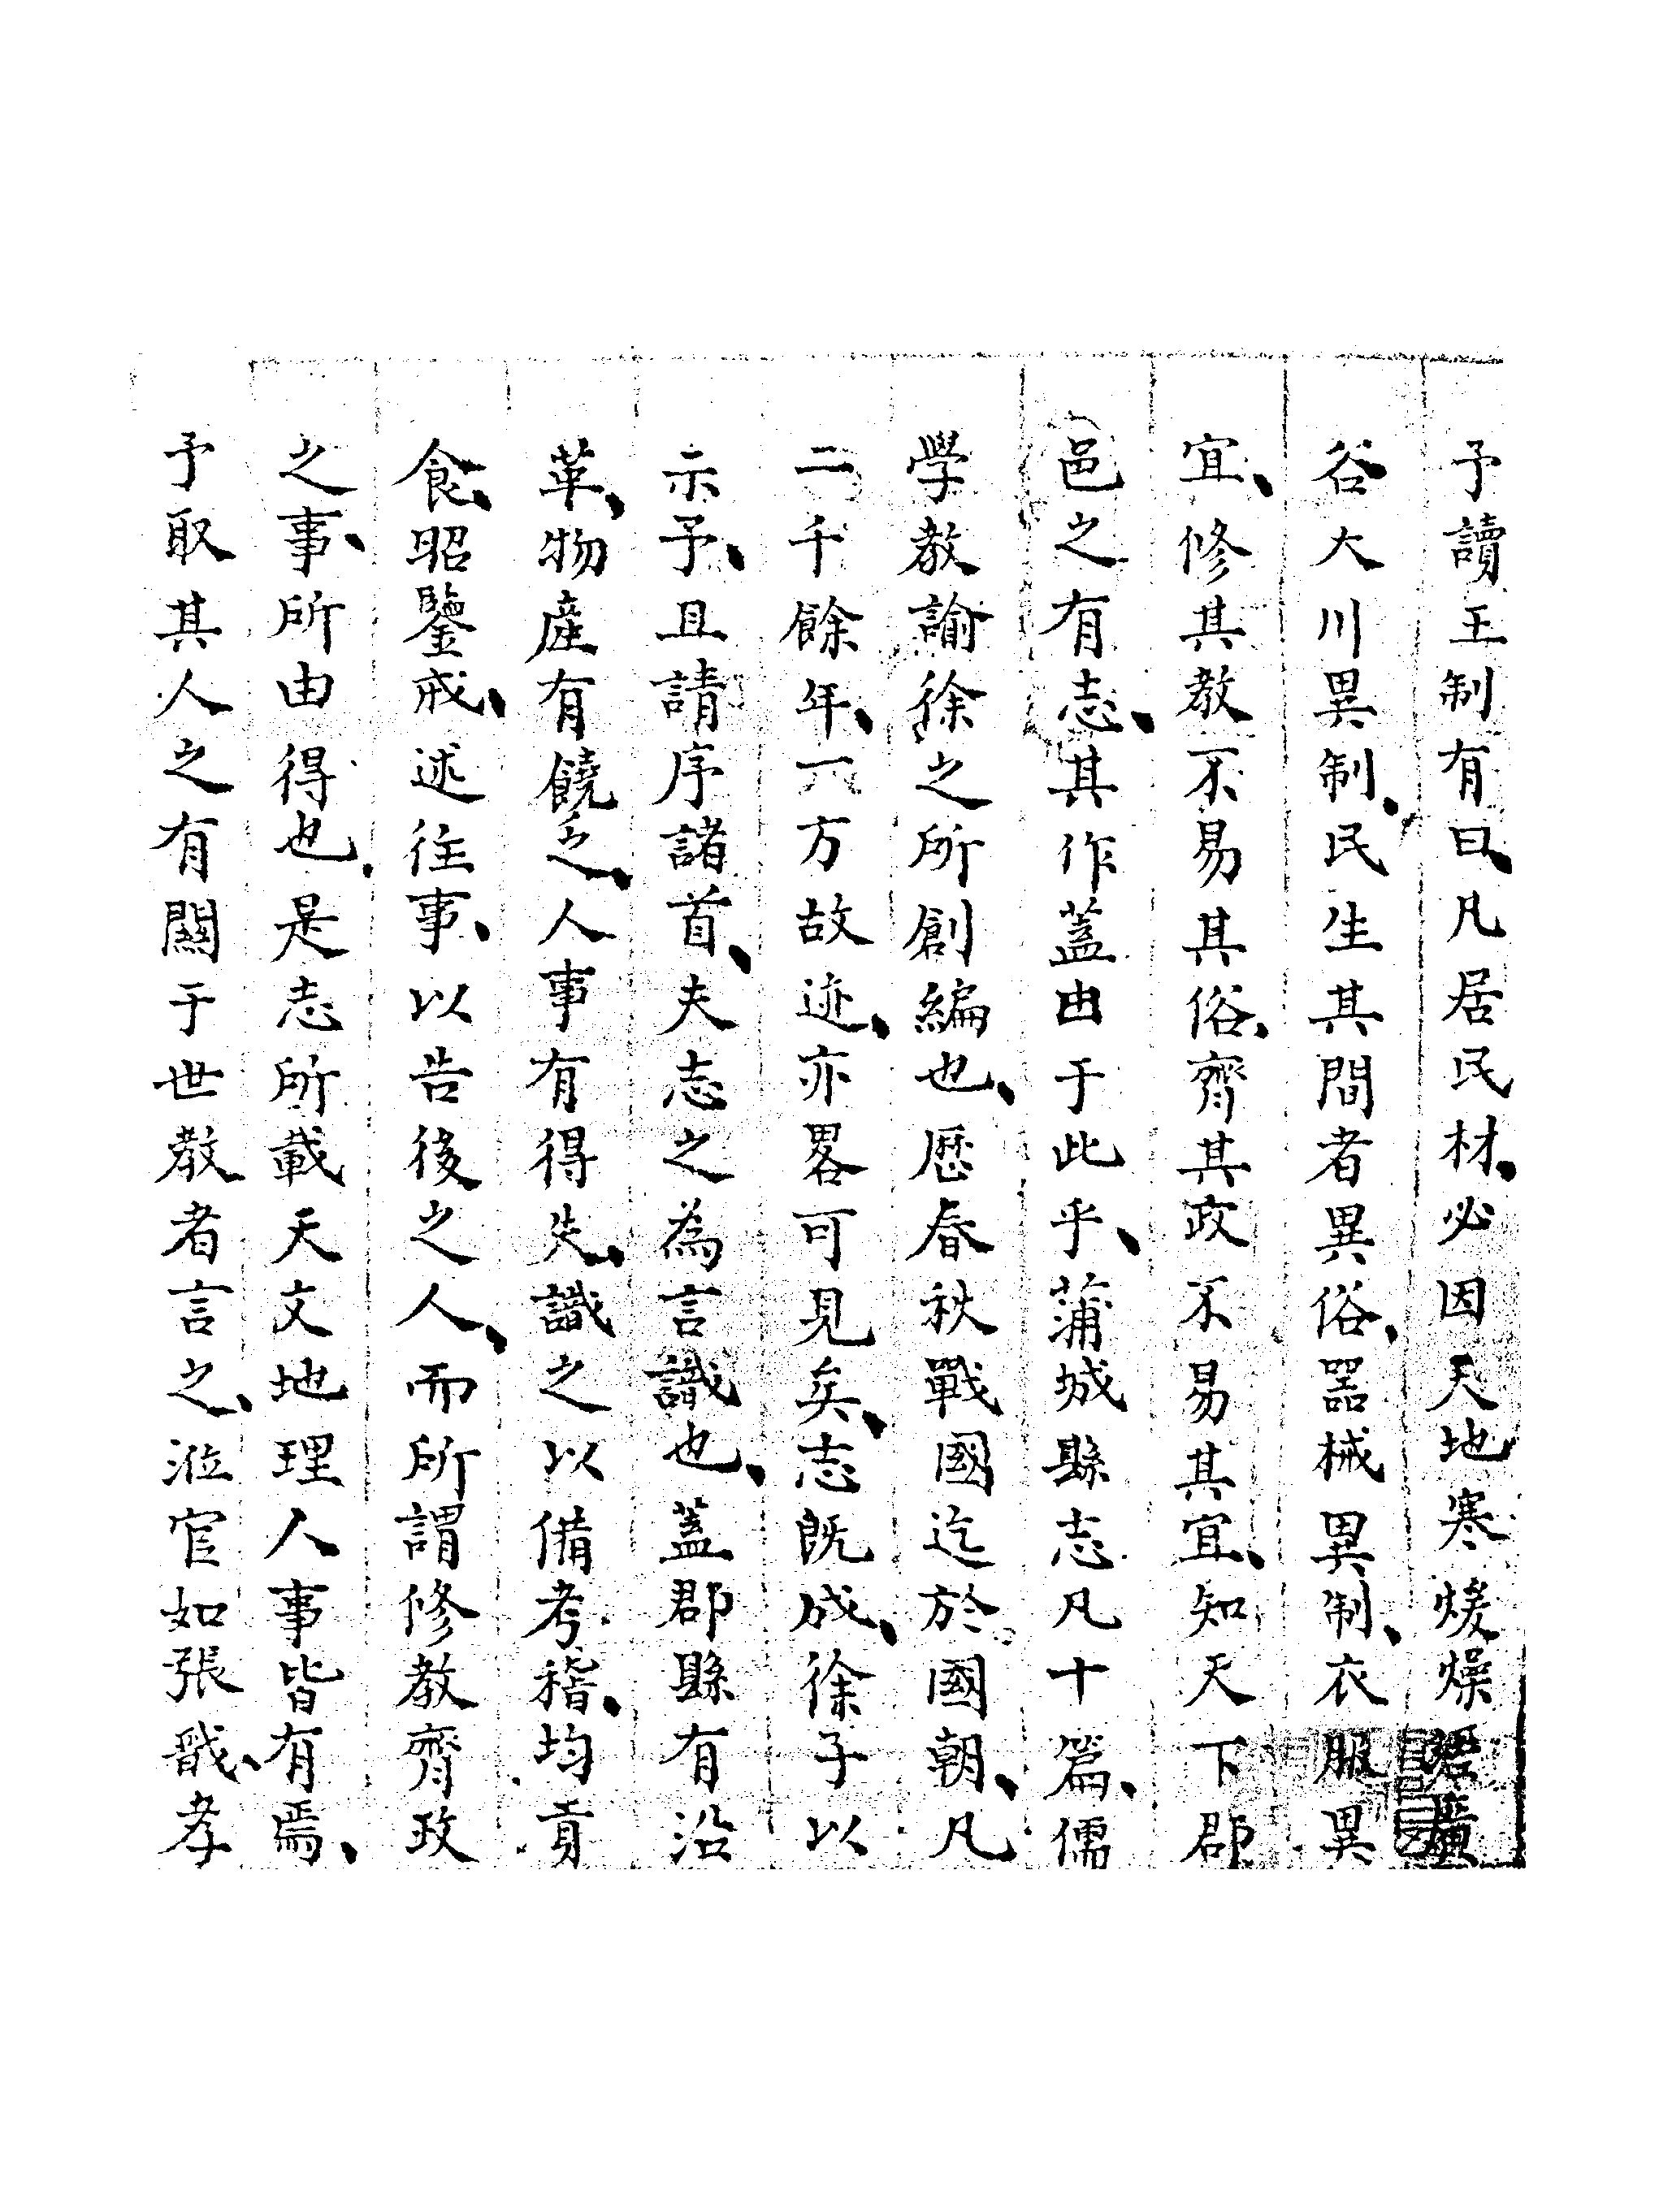 予讀王制有曰、凡居民材、必因天地寒煖燥廣
谷大川異制、民生其間者異俗、器械異制、衣服異
宜、修其教不易其俗、齊其政不易其宜、知天下郡
邑之有志、其作蓋由于此乎、蒲城縣志凡十篇、儒
學教諭徐之所創編也、厯春秋戰國迄於國朝、凡
二千餘年、一方故迹、亦畧可見矣、志既成、徐子以
示予、且請序諸首、夫志之為言識也、蓋郡縣有沿
革、物產有饒乏、人事有得失、識之以備考稽、均貢
食、昭鑒戒、述往事、以告後之人、而所謂修教齊政
之事、所由得也、是志所載天文地理人事皆有焉、
予取其人之有關于世教者言之、涖官如張戩、孝